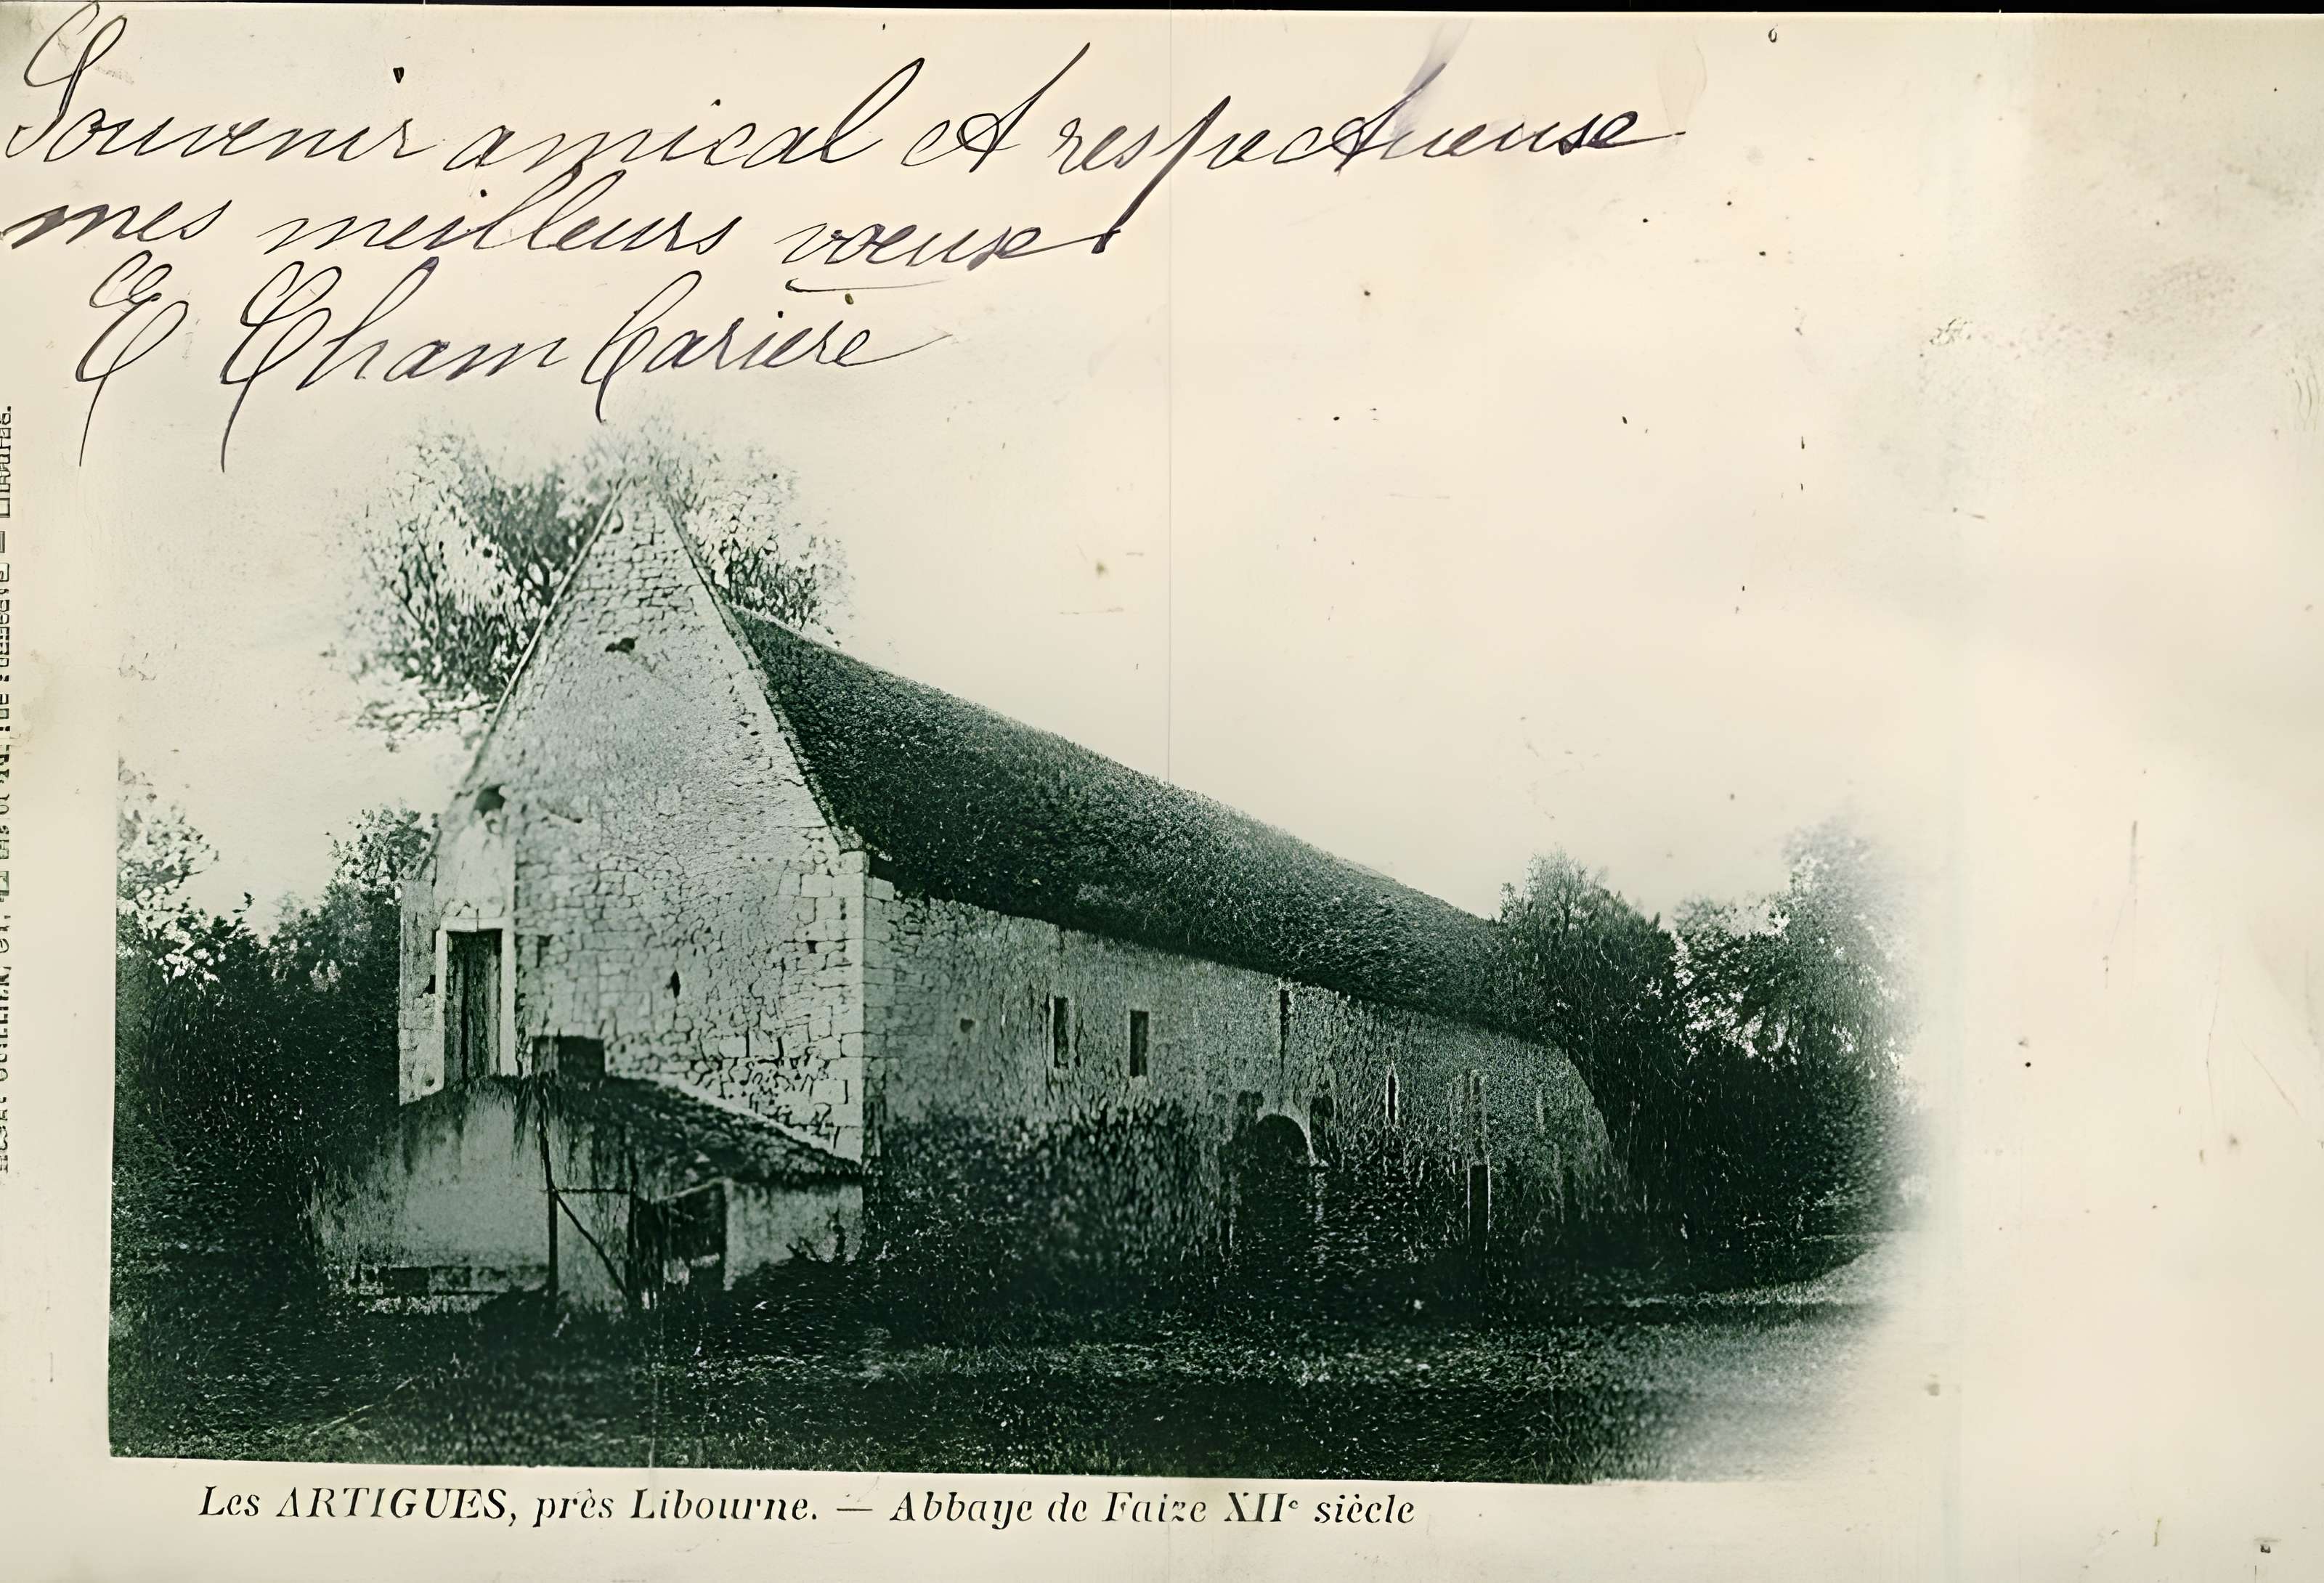 Souvenir amical et respectueuse
mes meilleurs voeuse
E Chambarière
Les ARTIGUES, près Libourne. — Abbaye de Faize XIIe siècle